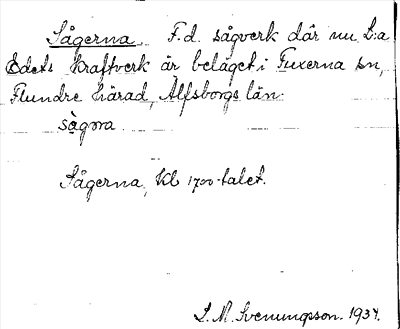 Sågerna. F.d. sågverk där nu L:a
Edets Kraftverk är beläget i Fuxerna sn,
Flundre härad, Älfsborgs län.
sågora
Sågerna, Kb 1700-talet.
S. M. Svenungsson. 1934.